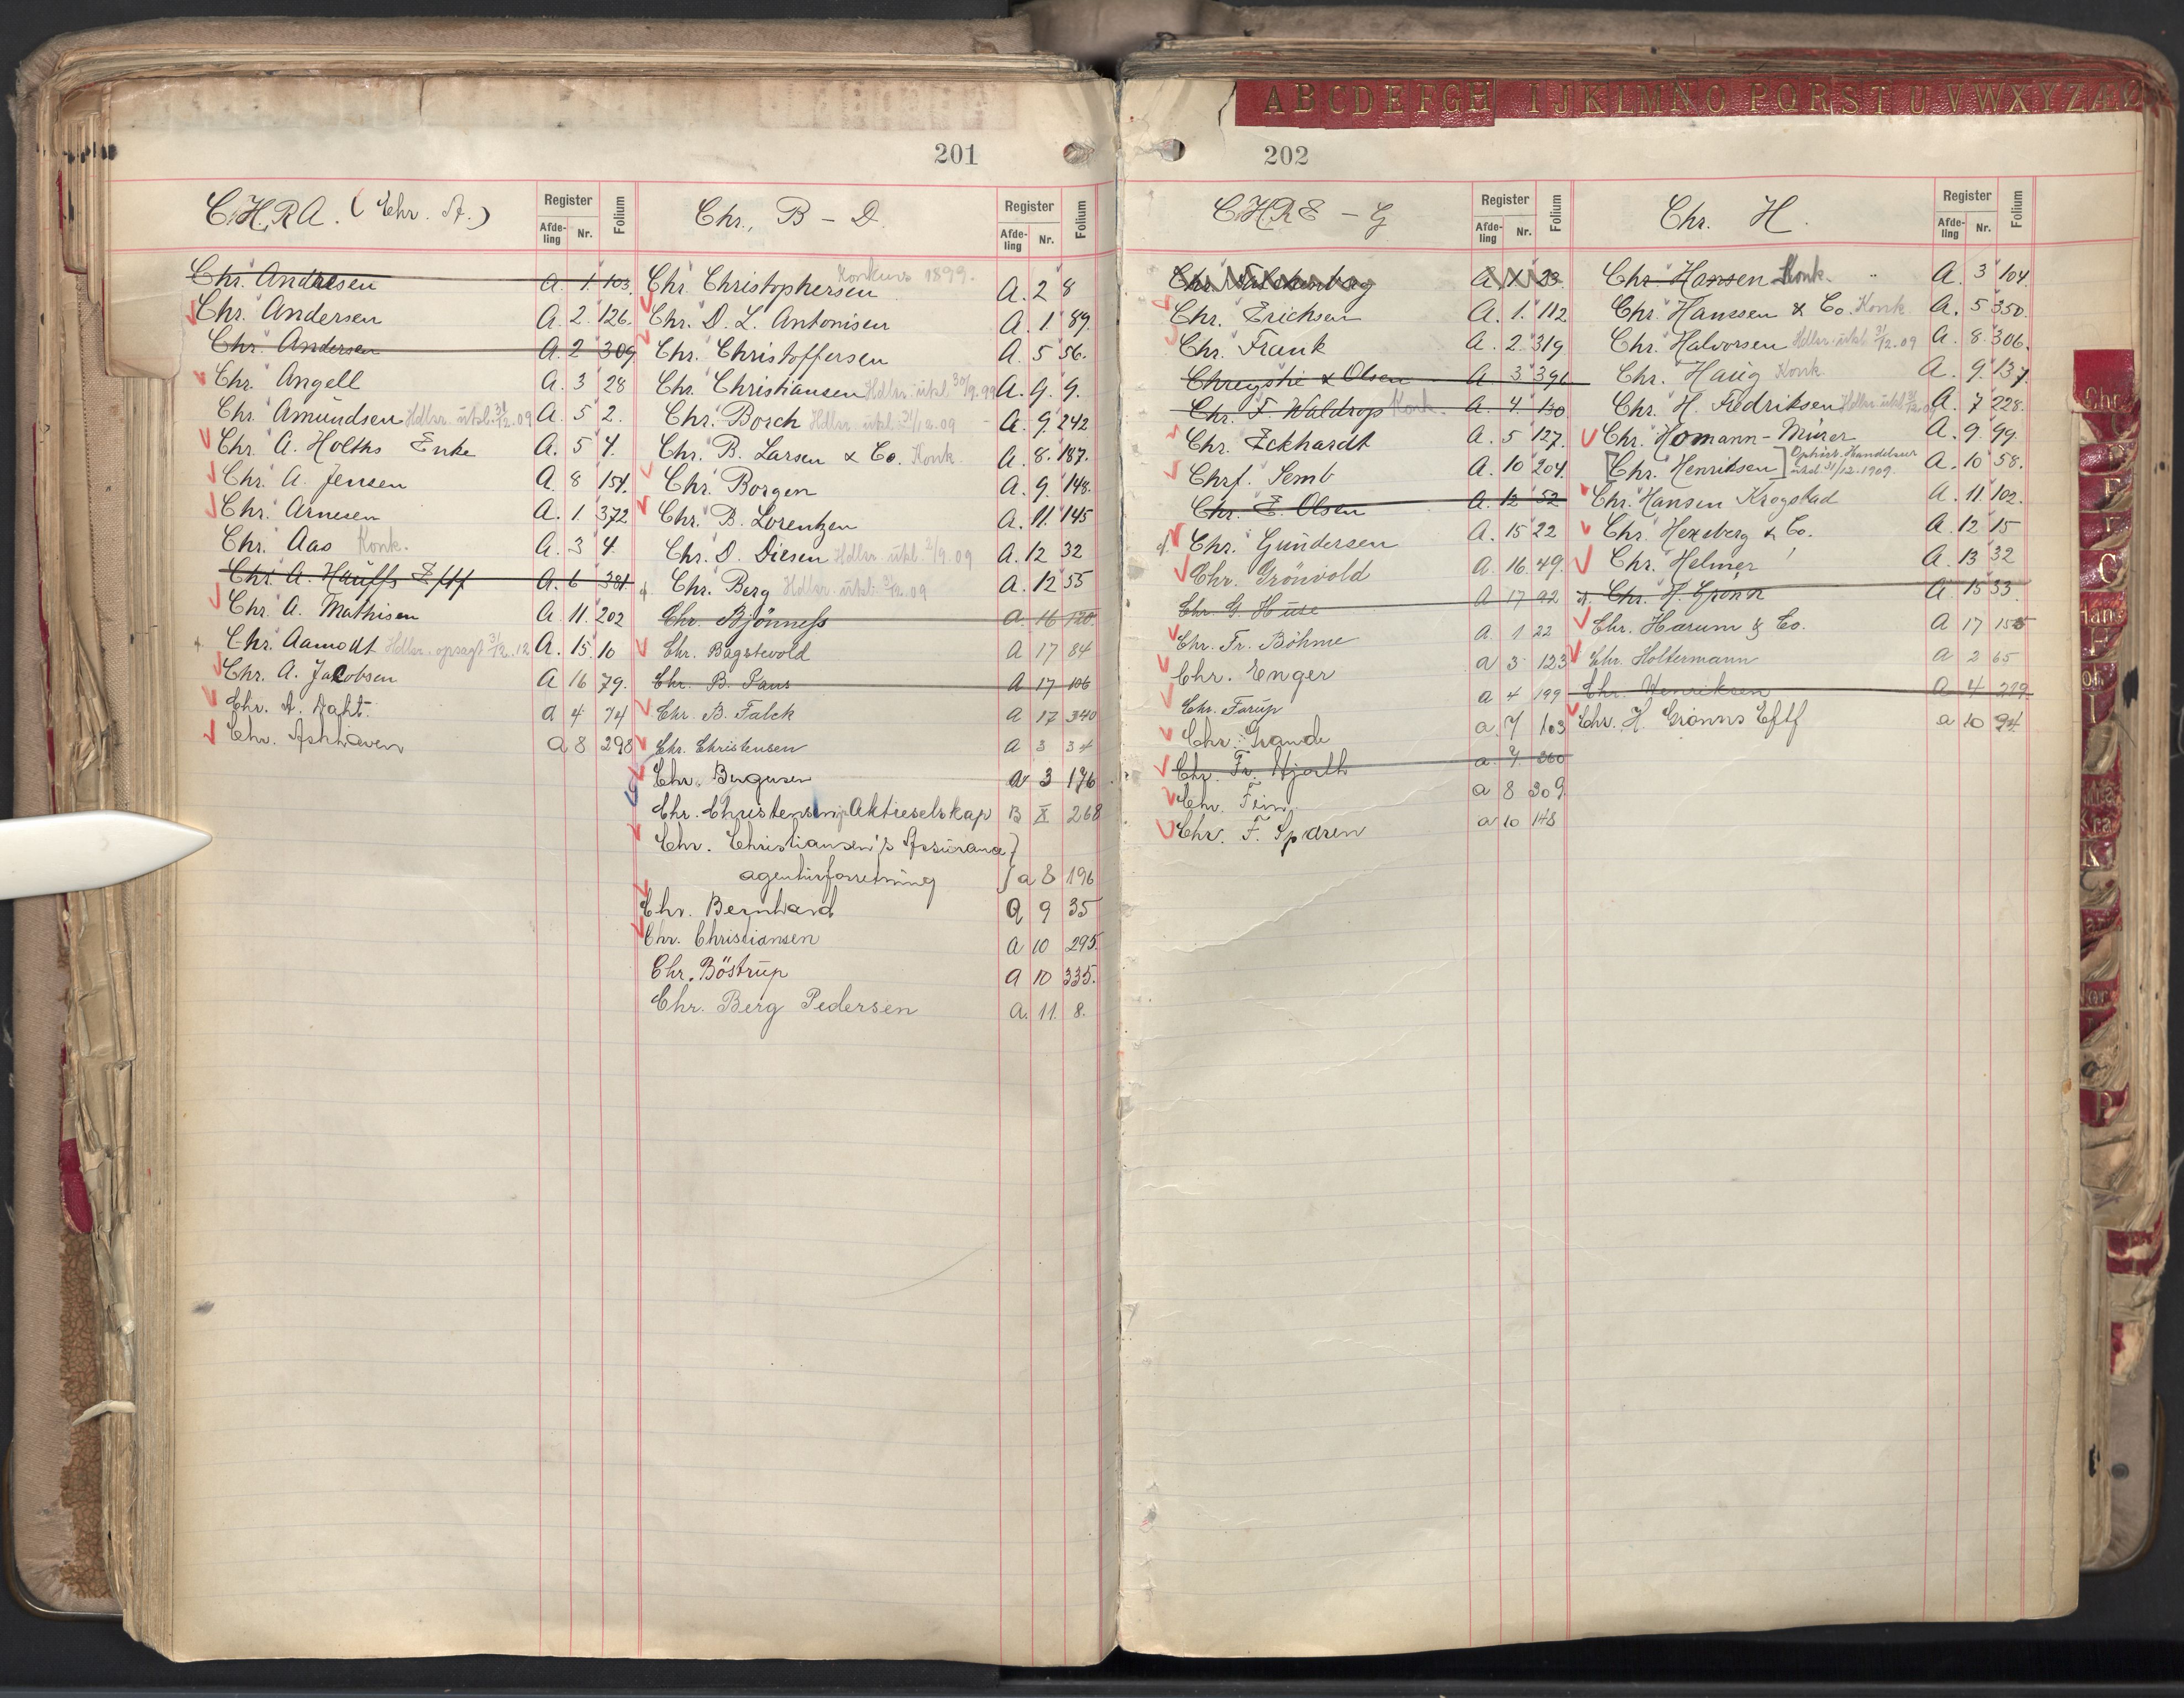 201
CHRA. (Chr. A.)
Register
Afde-ling Nr. Folium
Chr. Andresen A. 1. 103.
Chr. Andersen A. 2. 126.
Chr. Andersen A. 2 309
Chr. Angell A. 3 28
Chr. Amundsen Hdlsr. utsl. 31/12.09 A. 5 2.
Chr. A. Holths Enke A. 5 4.
Chr. A. Jensen A. 8 154.
Chr. Arnesen A. 1. 372
Chr. Aas Konk. A. 3 4.
Chr. A. Hauffs Eftf A. 6 384
Chr. A. Mathisen A. 11. 202
Chr. Aamodt Hdlsr. opsagt 31/12.12 A. 15. 10
Chr. A. Jacobsen A 16 79.
Chr. A. Dahl. a 4 74
Chr. a 8 298
Chr., B - D.
Register
Afde-ling Nr. Folium
Chr. Christophersen Konkurs 1899. A. 2 8
Chr. D. L. Antonisen A. 1. 89.
Chr. Christoffersen A. 5 56.
Chr. Christiansen Hdlsr. utsl. 30/9.99 A. 9. 9.
Chr. Borch Hdlsr. utsl. 31/12.09 A. 9. 242
Chr. B. Larsen & Co. Konk. A. 8. 187.
Chr. Borgen A. 9. 148.
Chr. B. Lorentzen A. 11. 145
Chr. D. Diesen Hdlsr. utsl. A. 12 32
Chr. Berg Hdlsr. utsl. 31/12.09 A. 12 55
Chr. Bjönness A. 16 120
Chr. Bagstevold A 17 84
Chr. B. Paus A 17 106
Chr. B. Falck A 17 340
Chr. Christensen A 3 34
Chr. Bergersen A 3 176
Chr. Christensen Aktieselskap B X 268
Chr. Christiansen's Assurance
agenturforretning a 8 196
Chr. Bernhard A 9 35
Chr. Christiansen A 10 295.
Chr. Böstrup A 10 335.
Chr. Berg Pedersen A. 11. 8.
A B C D E F G H I J K L M N O P Q R S T U V W X Y Z Æ Ø
202
CHRE - G
Register
Afde-ling Nr. Folium
Chr. A. X 23.
Chr. Erichsen A. 1. 112
Chr. Frank A. 2. 319
Chreystie & Olsen A. 3 396
Chr. F. Waldrop Konk. A. 4. 130
Chr. Eckhardt A. 5 127.
Chrf. Semb A. 10 204.
Chr. E. Olsen A. 12 52
Chr. Gundersen A. 15 22
Chr. Grönvold A. 16. 49.
Chr. G. Huse A 17 92
Chr. Fr. Böhme A. 1 22
Chr. Enger a 3 123
Chr. Farup a 4 199
Chr. Grande a. 7 103
Chr. Fr. Hjorth a. 7 260
Chr. a 8 309.
Chr. F. Sparen a 10 148
Chr. H.
Register
Afde-ling Nr. Folium
Chr. Hansen Konk. A. 3 104.
Chr. Hanssen & Co. Konk A. 5 350.
Chr. Halvorsen Hdlsr. utsl. 31/12.09 A. 8. 306.
Chr. Haug Konk. A. 9. 137
Chr. H. Fredriksen Hdlsr. utsl. 31/12.09 A. 7 228.
Chr. Homann-Mürer A. 9. 99.
[Chr. Henriksen] Ophört. Handelsr. utsl. 31/12.1909. A. 10 58.
Chr. Hansen Krogstad A. 11. 102.
Chr. Hexeberg & Co. A. 12 15
Chr. Helmer A. 13 32
Chr. H. Grönn A. 15 33.
Chr. Harum & Co. A 17 155
Chr. Holtermann a 2 65
Chr. Henriksen a 4 229.
Chr. H. Grönns Eftf a 10 94.
Chr